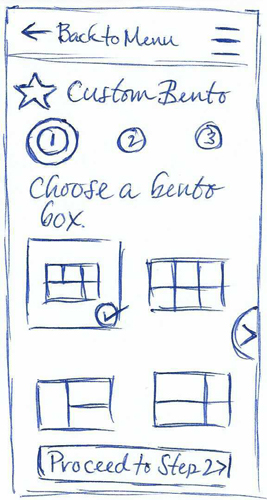 ← Back to Menu
Custom Bento
1 2 3
Choose a bento
box.
Proceed to Step 2>